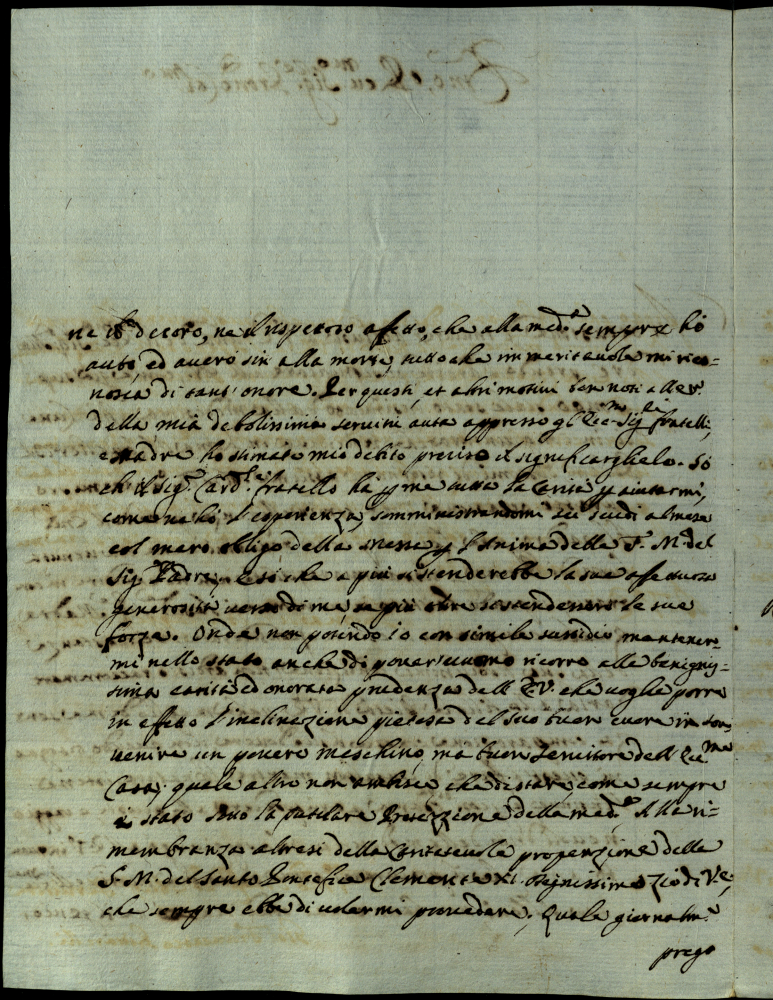 ne il decoro, ne il rispettoso affetto, che alla med.a sempre hò
auto, ed auerò sin alla morte, tutto che immeriteuole mi rico=
nosca di tant'onore. Per questi, et altri motiui ben noti all'E.V.
della mia debolissima seruitù auta appresso gl'Ecc.mi Sig.ri fratelli,
e Madre ho stimato mio debito preciso il significarglielo. Sò
ch'il Sig.r Card.le fratello ha p me tutta la Carità p aiutarmi,
come ne hò l'esperienza, somministrandomi sei scudi al mese
col mero obligo della Messa p l'Anima della F. M. del
Sig.r Padre, e sò che a più si stenderebbe la sua affettuosa
generosità uerso di me, se più oltre si stendessero le sue
forze. Onde non potendo io con simile sussidio mantener=
mi nello stato anche di pouer'uomo ricorro alla benignis=
sima carità, ed onorata prudenza dell'E.V. che uoglia porre
in effetto l'inclinazione pietosa del suo buon cuore in sou=
uenire un pouero meschino, ma buon seruitore dell'Ecc.ma
Casa, quale altro non ambisce che di stare, come sempre
è stato sotto la tutelare Protezzione della med.a Alla ri=
membranza altresì della Cortese propenzione della
S. M. del Santo Pontefice Clemente XI. degnissimo zio di V.E.
che sempre ebbe di uolermi prouedere, Quale giornalm.te
prego